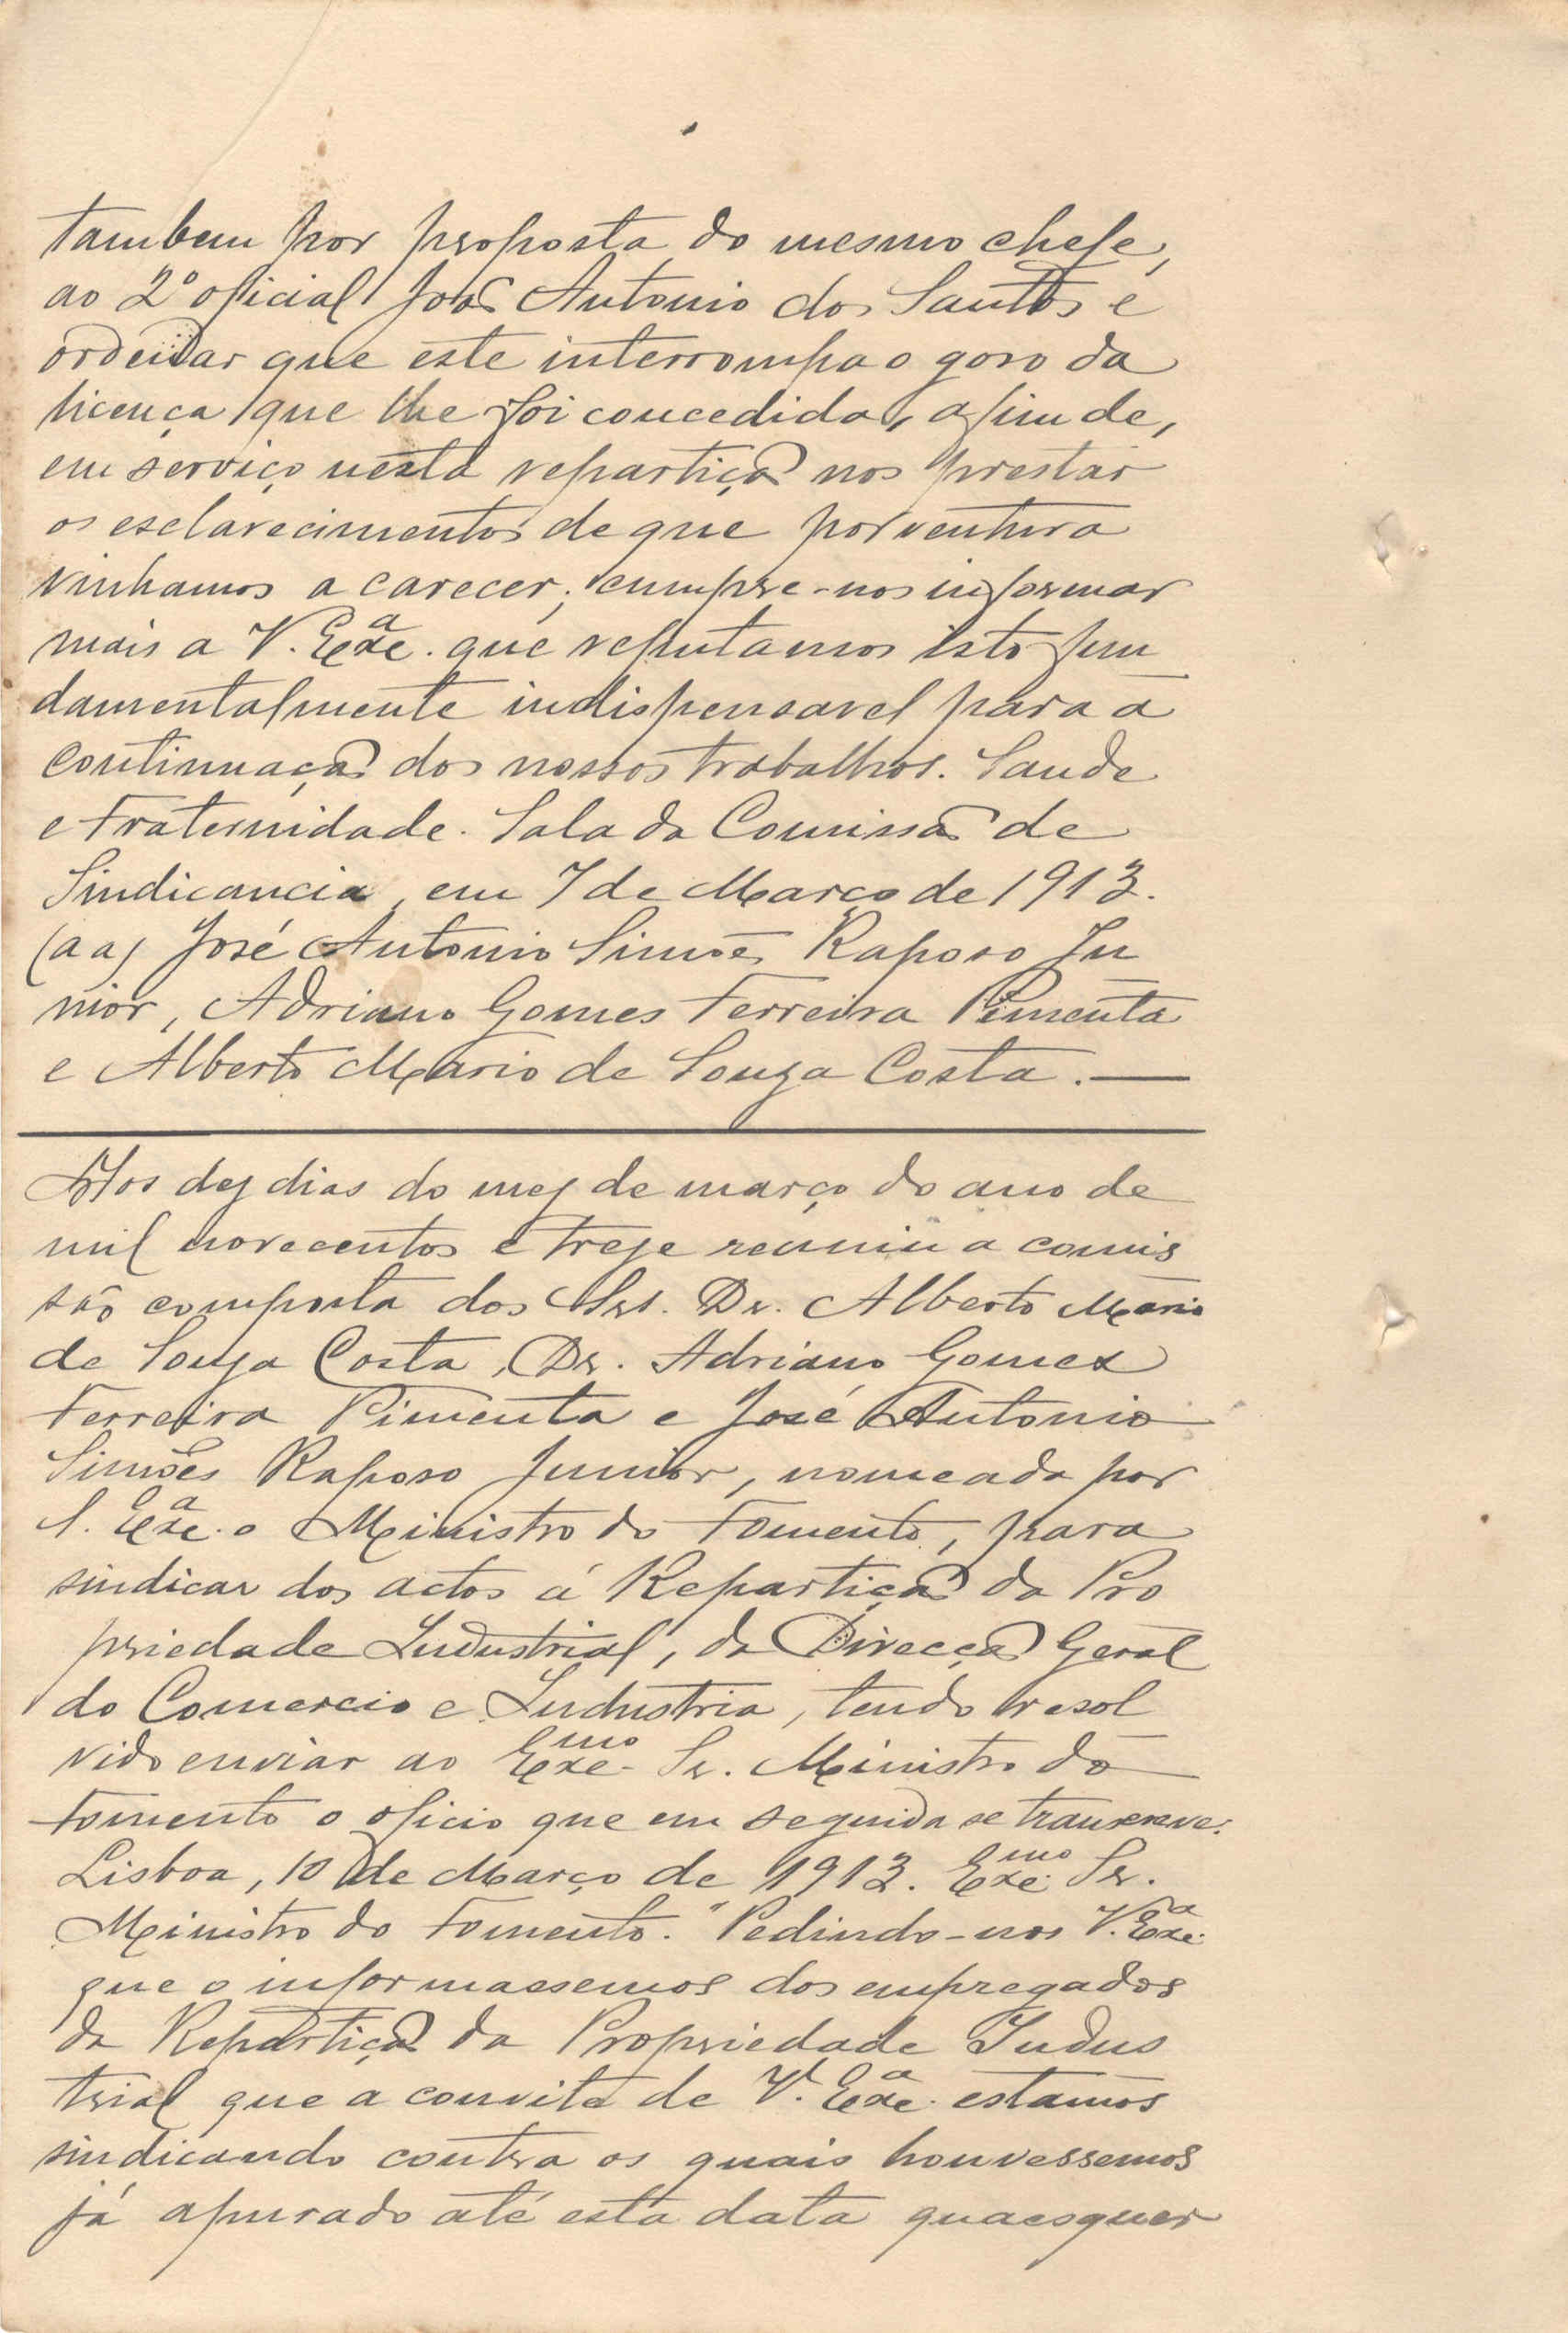 tambem por proposta do mesmo chefe,
ao 2º oficial João Antonio dos Santos e
ordenar que este interrompa o goso da
licença que lhe foi concedida, afim de,
em serviço nesta repartição nos prestar
os esclarecimentos de que porventura
vinhamos a carecer; cumpre-nos informar
mais a V. Exª. que reputamos isto fun
damentalmente indispensavel para a
continuação dos nossos trabalhos. Saude
e Fraternidade. Sala da Comissão de
Sindicancia, em 7 de Março de 1913.
(aa) José Antonio Simões Raposo Ju
nior, Adriano Gomes Ferreira Pimenta
e Alberto Mario de Souza Costa. —
Aos dez dias do mez de março do ano de
mil novecentos e treze reuniu a comis
são composta dos Srs. Dr. Alberto Mario
de Souza Costa, Dr. Adriano Gomes
Ferreira Pimenta e José Antonio
Simões Raposo Junior, nomeada por
S. Exª. o Ministro do Fomento, para
sindicar dos actos á Repartição da Pro
priedade Industrial, da Direcção Geral
do Comercio e Industria, tendo resol
vido enviar ao Exmo. Sr. Ministro do
Fomento o oficio que em seguida se transcreve:
Lisboa, 10 de Março de 1913. Exmo. Sr.
Ministro do Fomento. "Pedindo-nos V. Exª.
que o informassemos dos empregados
da Repartição da Propriedade Indus
trial que a convite de V. Exª. estamos
sindicando contra os quais houvessemos
já apurado até esta data quaesquer